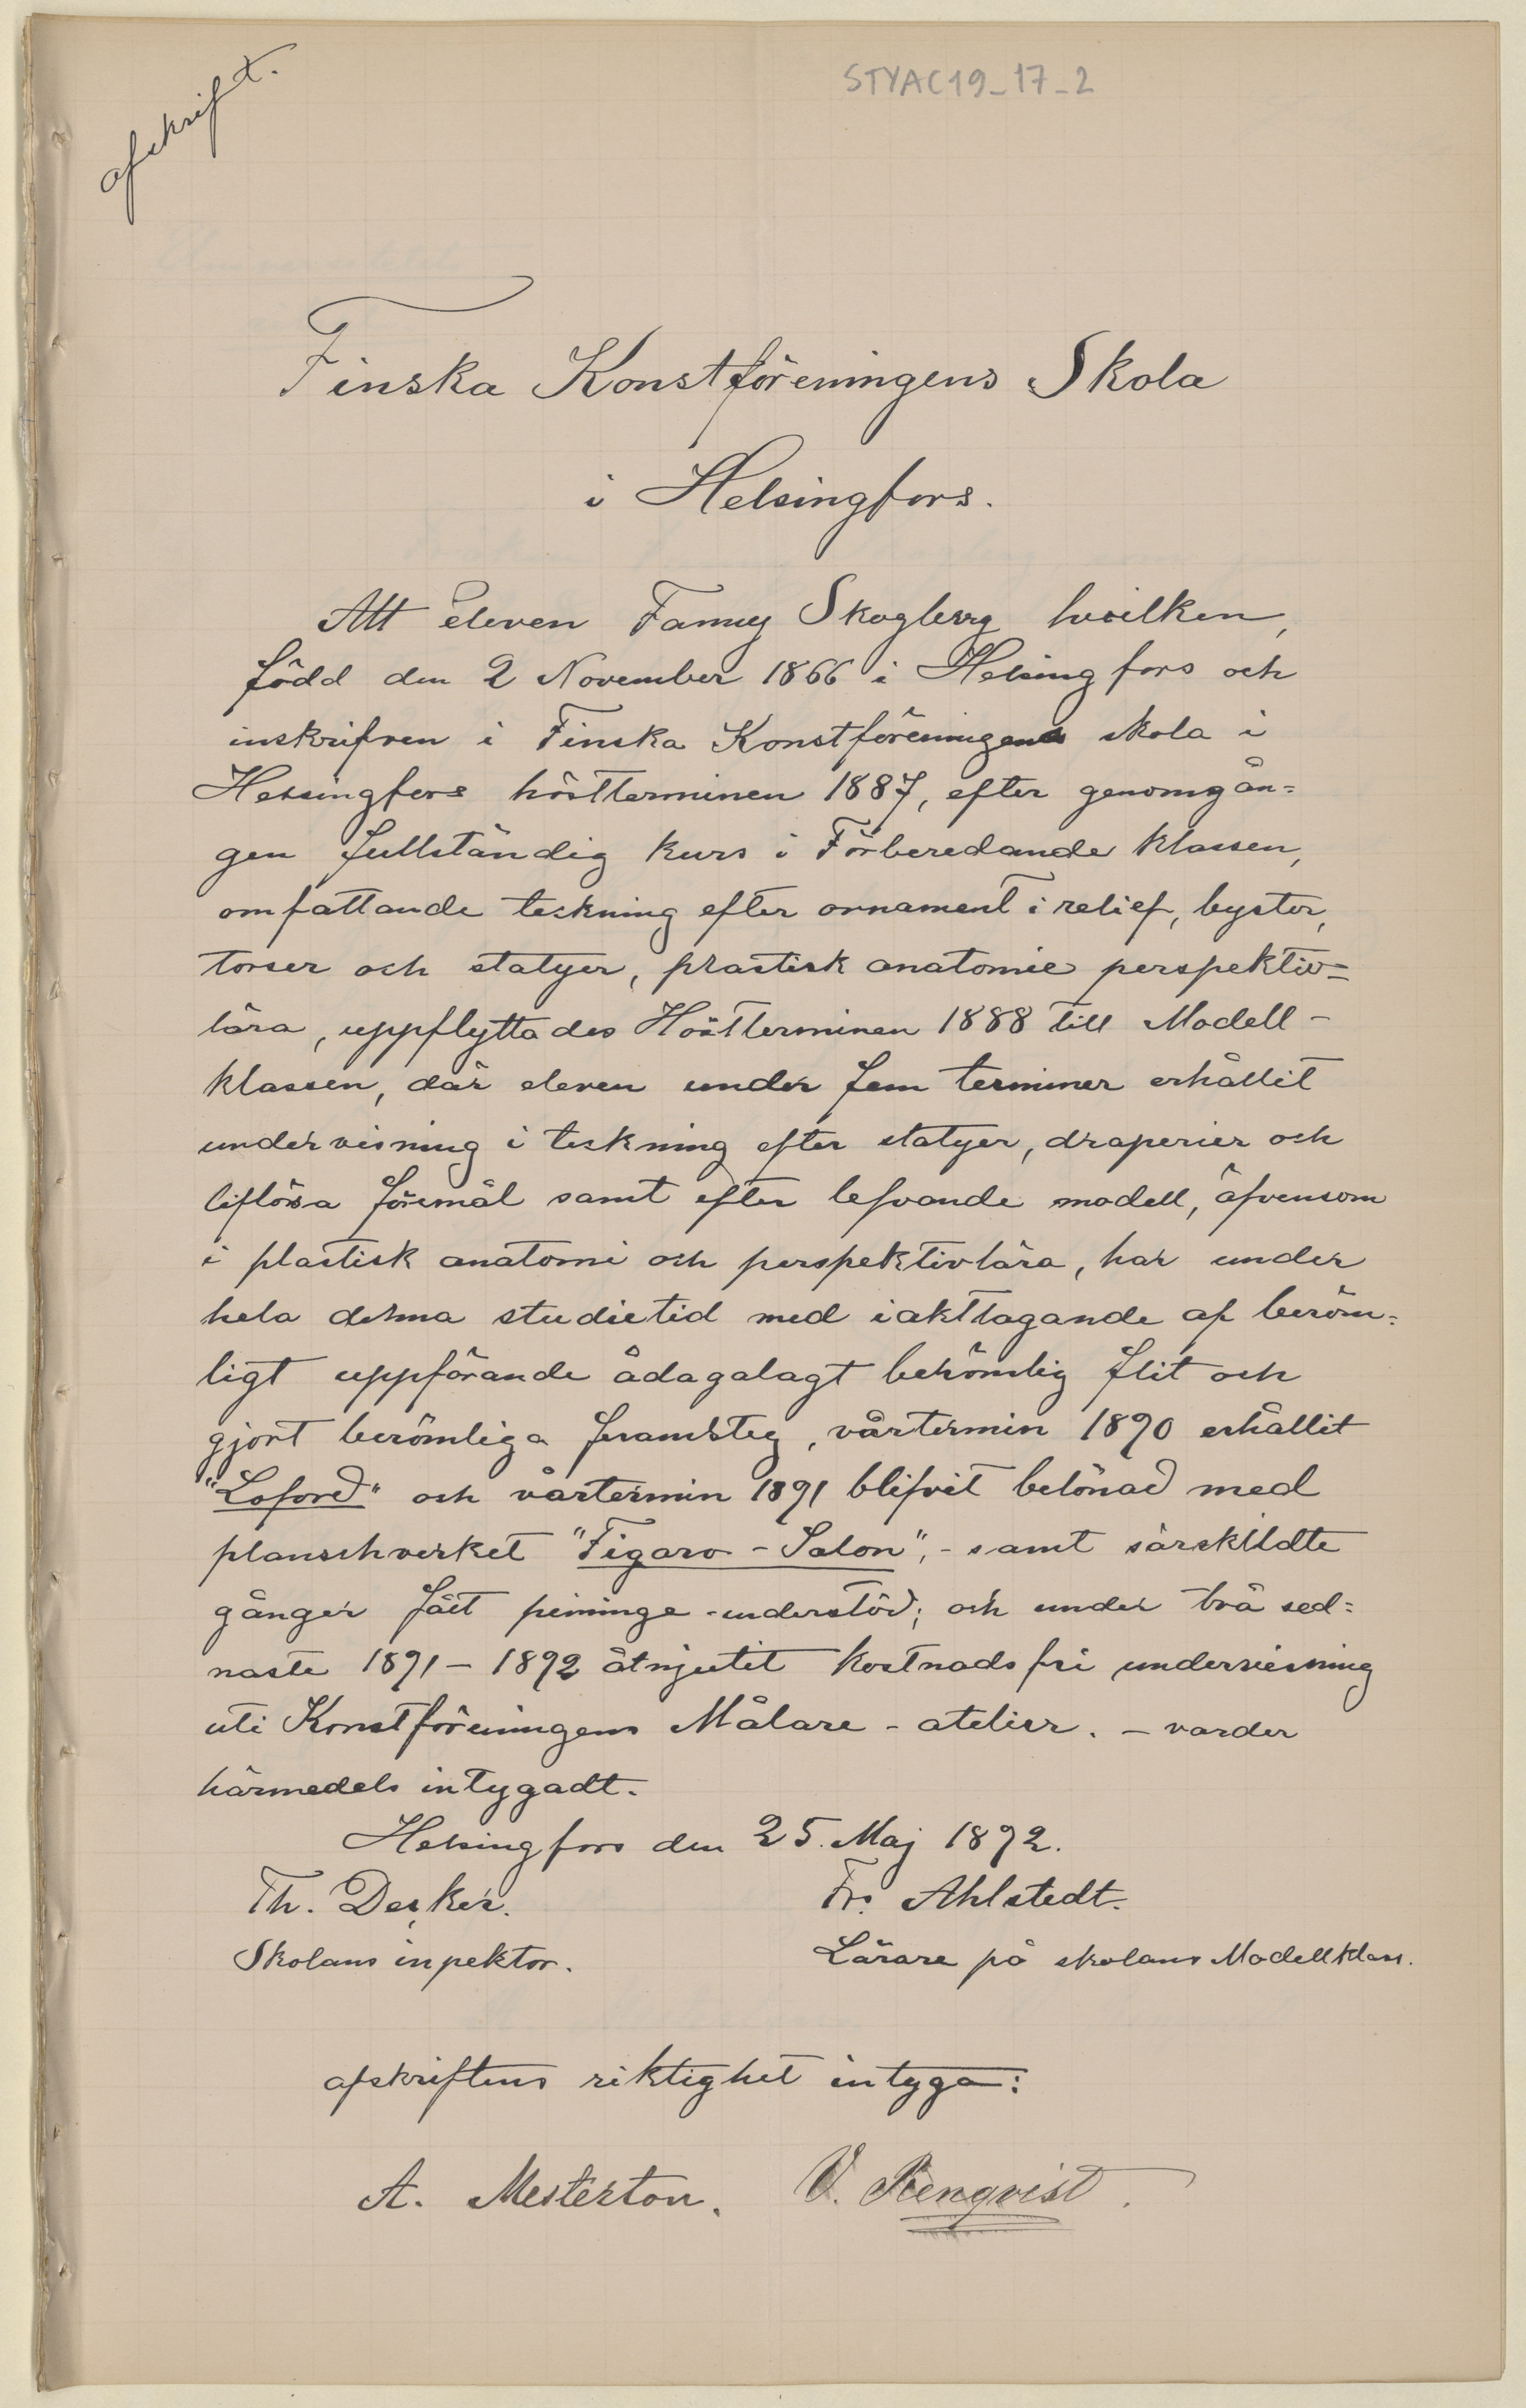 STYAC19_17_2
afskrift.
Finska Konstföreningens Skola
i Helsingfors.
Att eleven Fanny Skogberg hvilken,
född den 2 November 1866 i Helsingfors och
inskrifven i Finska Konstföreningens skola i
Helsingfors höstterminen 1887, efter genomgån=
gen fullständig kurs i Förberedande klassen,
omfattande teckning efter ornament i relief, byster,
torser och statyer, plastisk anatomie perspektiv=
lära, uppflyttades Höstterminen 1888 till Modell-
klassen, där eleven under fem terminer erhållit
undervisning i teckning efter statyer, draperier och
liflösa föremål samt efter lefvande modell, äfvensom
i plastisk anatomi och perspektivlära, har under
hela denna studietid med iakttagande af beröm=
ligt uppförande ådagalagt berömlig flit och
gjort berömliga framsteg, vårtermin 1890 erhållit
"Loford" och vårtermin 1891 blifvit belönad med
planschverket "Figaro-Salon", - samt särskildte
gånger fått penninge-understöd; och under två sed=
naste 1891-1892 åtnjutit kostnadsfri undervisning
uti Konstföreningens Målare-atelier. - varder
härmedels intygadt.
Helsingfors den 25. Maj 1892.
Th. Decker. Fr. Ahlstedt.
Skolans inpektor. Lärare på skolans Modellklass.
afskriftens riktighet intyga:
A. Mesterton. V. Renqvist.